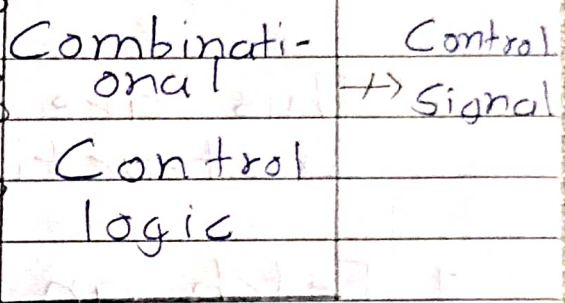 Combinati-
onal
Control
logic
Control
Signal